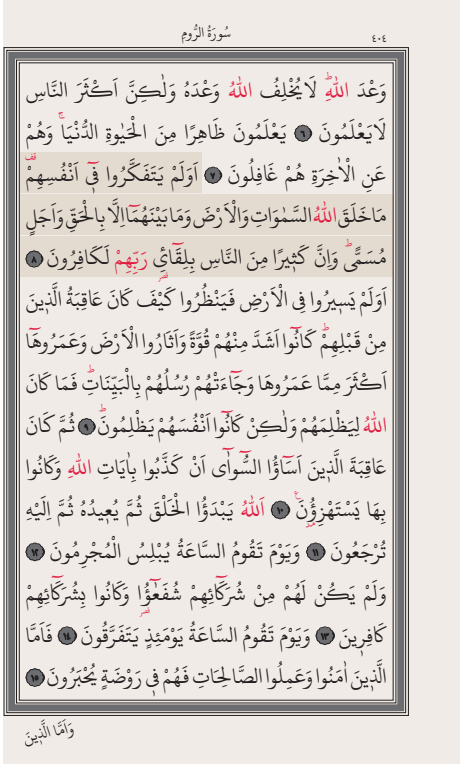 سُورَةُ الرُّومِ ٤٠٤
وَعْدَ اللّٰهِۜ لَا يُخْلِفُ اللّٰهُ وَعْدَهُ وَلٰكِنَّ اَكْثَرَ النَّاسِ
لَا يَعْلَمُونَ ﴿٦﴾ يَعْلَمُونَ ظَاهِرًا مِنَ الْحَيٰوةِ الدُّنْيَاۚ وَهُمْ
عَنِ الْاٰخِرَةِ هُمْ غَافِلُونَ ﴿٧﴾ اَوَلَمْ يَتَفَكَّرُوا فٓي اَنْفُسِهِمْ۠
مَا خَلَقَ اللّٰهُ السَّمٰوَاتِ وَالْاَرْضَ وَمَا بَيْنَهُمَٓا اِلَّا بِالْحَقِّ وَاَجَلٍ
مُسَمًّىۜ وَاِنَّ كَث۪يرًا مِنَ النَّاسِ بِلِقَٓائِ۬ رَبِّهِمْ لَكَافِرُونَ ﴿٨﴾
اَوَلَمْ يَس۪يرُوا فِي الْاَرْضِ فَيَنْظُرُوا كَيْفَ كَانَ عَاقِبَةُ الَّذ۪ينَ
مِنْ قَبْلِهِمْۜ كَانُٓوا اَشَدَّ مِنْهُمْ قُوَّةً وَاَثَارُوا الْاَرْضَ وَعَمَرُوهَٓا
اَكْثَرَ مِمَّا عَمَرُوهَا وَجَٓاءَتْهُمْ رُسُلُهُمْ بِالْبَيِّنَاتِۜ فَمَا كَانَ
اللّٰهُ لِيَظْلِمَهُمْ وَلٰكِنْ كَانُٓوا اَنْفُسَهُمْ يَظْلِمُونَۜ ﴿٩﴾ ثُمَّ كَانَ
عَاقِبَةَ الَّذ۪ينَ اَسَٓاؤُا السُّٓوآٰى اَنْ كَذَّبُوا بِاٰيَاتِ اللّٰهِ وَكَانُوا
بِهَا يَسْتَهْزِؤُ۫نَ۟ ﴿١٠﴾ اَللّٰهُ يَبْدَؤُا الْخَلْقَ ثُمَّ يُع۪يدُهُ ثُمَّ اِلَيْهِ
تُرْجَعُونَ ﴿١١﴾ وَيَوْمَ تَقُومُ السَّاعَةُ يُبْلِسُ الْمُجْرِمُونَ ﴿١٢﴾
وَلَمْ يَكُنْ لَهُمْ مِنْ شُرَكَٓائِهِمْ شُفَعٰٓؤُ۬ا وَكَانُوا بِشُرَكَٓائِهِمْ
كَافِر۪ينَ ﴿١٣﴾ وَيَوْمَ تَقُومُ السَّاعَةُ يَوْمَئِذٍ يَتَفَرَّقُونَ ﴿١٤﴾ فَاَمَّا
الَّذ۪ينَ اٰمَنُوا وَعَمِلُوا الصَّالِحَاتِ فَهُمْ ف۪ي رَوْضَةٍ يُحْبَرُونَ ﴿١٥﴾
وَاَمَّا الَّذ۪ينَ